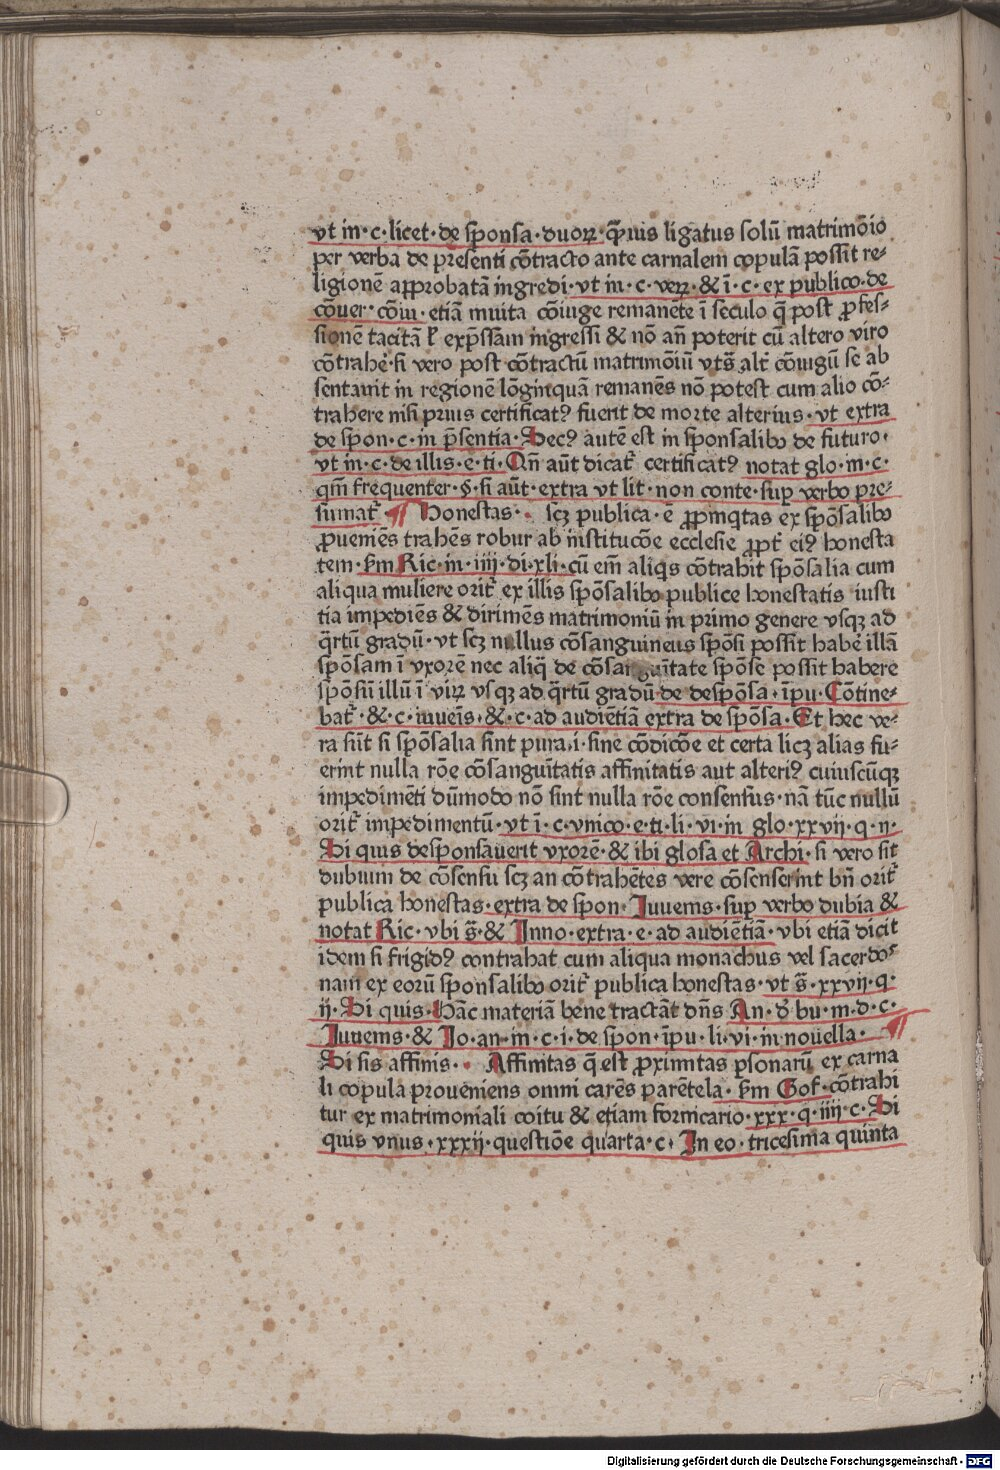 vt in·c·licet·de sponsa·duoꝝ·q̄uis ligatus solū matrimōio
per verba de presenti cōtracto ante carnalem copulā possit re⸗
ligionē approbatā ingredi·vt in·c·veꝝ·&ī·c·ex publico·de
cōuer·cōiu·etiā inuita cōiuge remanēte ī seculo q̄ post ꝓfes⸗
sionē tacitā ł exp̄ssam ingressi & nō an̄ poterit cū altero viro
cōtrahe᷑·si vero post cōtractū matrimōiū vts̄ alt᷑ cōiugū se ab
sentauit in regionē lōginquā remanēs nō potest cum alio cō⸗
trahere nisi prius certificatꝰ fuerit de morte alterius·vt extra
de spon·c·in p̄sentia·Secꝰ autē est in sponsalibꝰ de futuro·
vt in·c·de illis·e·ti·Qn̄ aūt dicat᷑ certificatꝰ notat glo·in·c·
qm̄ frequenter·§·si aūt·extra vt lit·non conte·suꝑ verbo pre⸗
sumat᷑·¶ Honestas· scꝫ publica·ē ꝓpīqtas ex spōsalibꝰ
ꝓueniēs trahēs robur ab institucōe ecclesie ꝓpt᷑ eiꝰ honesta
tem·ẜm Ric·in·iiij·di·xli·cū em̄ aliqs cōtrahit spōsalia cum
aliqua muliere orit᷑ ex illis spōsalibꝰ publice honestatis iusti
tia impediēs & dirimēs matrimoniū in primo genere vsqꝫ ad
q̄rtū gradū·vt scꝫ nullus cōsanguineus spōsi possit habe᷑ illā
spōsam ī vxorē nec aliq̄ de cōsanguītate spōse possit habere
spōsū illū ī viꝝ vsqꝫ ad q̄rtū gradū·de despōsa·īpu·Cōtine⸗
bat᷑·&·c·iuuēis·&·c·ad audiētiā extra de spōsa·Et hec ve⸗
ra sūt si spōsalia sint pura·i·sine cōdicōe et certa licꝫ alias fu⸗
erint nulla rōe cōsanguītatis affinitatis aut alteriꝰ cuiuscūqꝫ
impedimēti dūmodo nō sint nulla rōe consensus·nā tūc nullū
orit᷑ impedimentū·vt ī·c·vnico·e·ti·li·vi·in glo·xxvij·q·ij·
Si quis desponsauerit vxorē·& ibi glosa et Archi·si vero sit
dubium de cōsensu scꝫ an cōtrahētes vere cōsenserint bn̄ orit᷑
publica honestas·extra de spon·Iuuenis·suꝑ verbo dubia &
notat Ric·vbi s̄·& Inno·extra·e·ad audiētiā·vbi etiā dicit
idem si frigidꝰ contrahat cum aliqua monachus vel sacerdos
nam ex eorū sponsalibꝰ orit᷑ publica honestas·vt s̄·xxvij·q·
ij·Si quis·Hāc materiā bene tractāt dn̄s An·ꝺ᷑ bu·in·d·c·
Iuuenis·& Io·an·in·c·i·de spon·īpu·li·vi·in nouella· ¶
Si sis affinis· Affinitas q̄ est ꝓximitas ꝑsonarū ex carna
li copula proueniens omni carēs parētela·ẜm Gof·cōtrahi
tur ex matrimoniali coitu & etiam fornicario·xxx·q·iiij·c·Si
quis vnus·xxxij·questiōe quarta·c·In eo·tricesima quinta
Digitalisierung gefördert durch die Deutsche Forschungsgemeinschaft - DFG